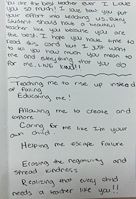 Ur the best teacher ever I love
you so much! I love how you put
your effort into teaching us. Every
student should have a beautiful
teacher like you because you are
the best. I hope you have time to
read this card but I just wanna
let you know how much you mean to
me and everything that you do
for me. LOVE YOU!!
Teaching me to rise up instead
of failing
Educating me!
Allowing me to create and
explore
Caring for me like I'm your
own child.
Helping me escape failure
Erasing the negativity and
spread kindness
Realising that every child
needs a teacher like you!!